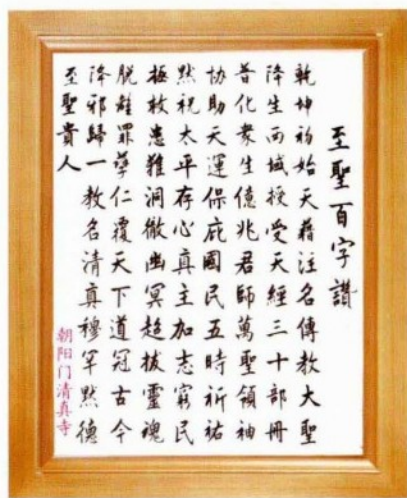 至聖百字讚
乾坤初始天藉注名傳教大聖
降生西域授受天經三十部冊
普化衆生億兆君師萬聖領袖
協助天運保庇國民五時祈祐
默祝太平存心真主加志窮民
極救患難洞徹幽冥超拔靈魂
脱離罪孽仁覆天下道冠古今
降邪歸一教名清真穆罕默德
至聖貴人
朝阳门清真寺